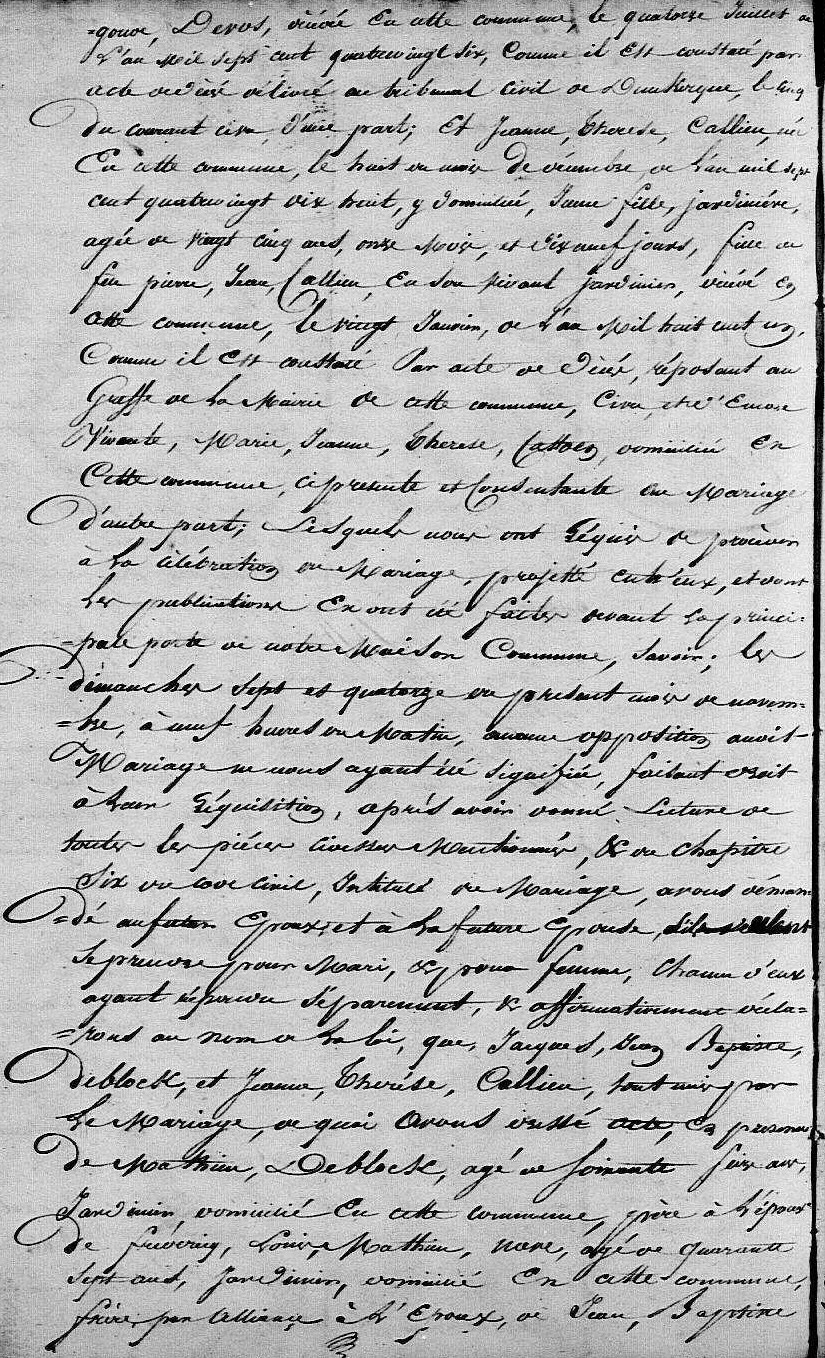 =goue, Devos, décédé En cette commune, le quatorze Juillet de
L'an Mil sept cent quatrevingt six, Comme il Est constaté par
acte de décès délivré au tribunal Civil de Dunkerque, le cinq
du courant cive, d'une part; Et Jeanne, Therese, Callieu, née
En cette commune, le huit du mois De décembre de L'an mil sept
cent quatrevingt dix huit, y Domicilié, Jeune fille, jardinière,
agée de vingt cinq ans, onze Mois, et dix neuf jours, fille de
feu pierre, Jean, Callieu, En son vivant jardinier, décédé En
Cette commune, le vingt Janvier, de L'an Mil huit cent un,
Comme il Est constaté Par acte de Décès, réposant au
Greffe de La Mairie de cette commune, Encore
Vivante, Marie, Jeanne, Therese, domicilié En
Cette commune, ci presente et Consentante au Mariage
D'autre part; Lesquels nous ont Réquis de procéder
à La célébration du Mariage, projetté entr'eux, et dont
Les publications En ont été faites devant La princi-
=pale porte de notre Maison Commune, savoir; les
dimanches sept et quatorze du présent mois de novem-
=bre, à neuf heures du Matin, aucune opposition audit
Mariage ne nous ayant été signifiée, faisant droit
à Leur Réquisition, après avoir donné Lecture de
toutes les pièces Mentionnés, & du chapitre
Six du code Civil, Intitulé du Mariage, avons déman-
=dé au futur Epoux, et à La future Epouse, s'ils veulent
se prendre pour Mari, & pour femme, chacun d'eux
ayant répondu Séparement, & affirmativement décla-
=rons au nom de La loi, que, Jacques, Jean Baptiste,
Deblock, et Jeanne, Therése, Callieu, sont unis par
Le Mariage, de quoi avons dressé acte, En présence
De Mathieu, Deblock, agé de Soixante six ans,
Jardinier domicilié En cette commune, père à L'époux
De fréderiq, Louis, Mathieu, agé de quarante
sept ans, Jardinier, domicilié En cette commune,
frère par alliance à L'Epoux, de Jean, Baptiste